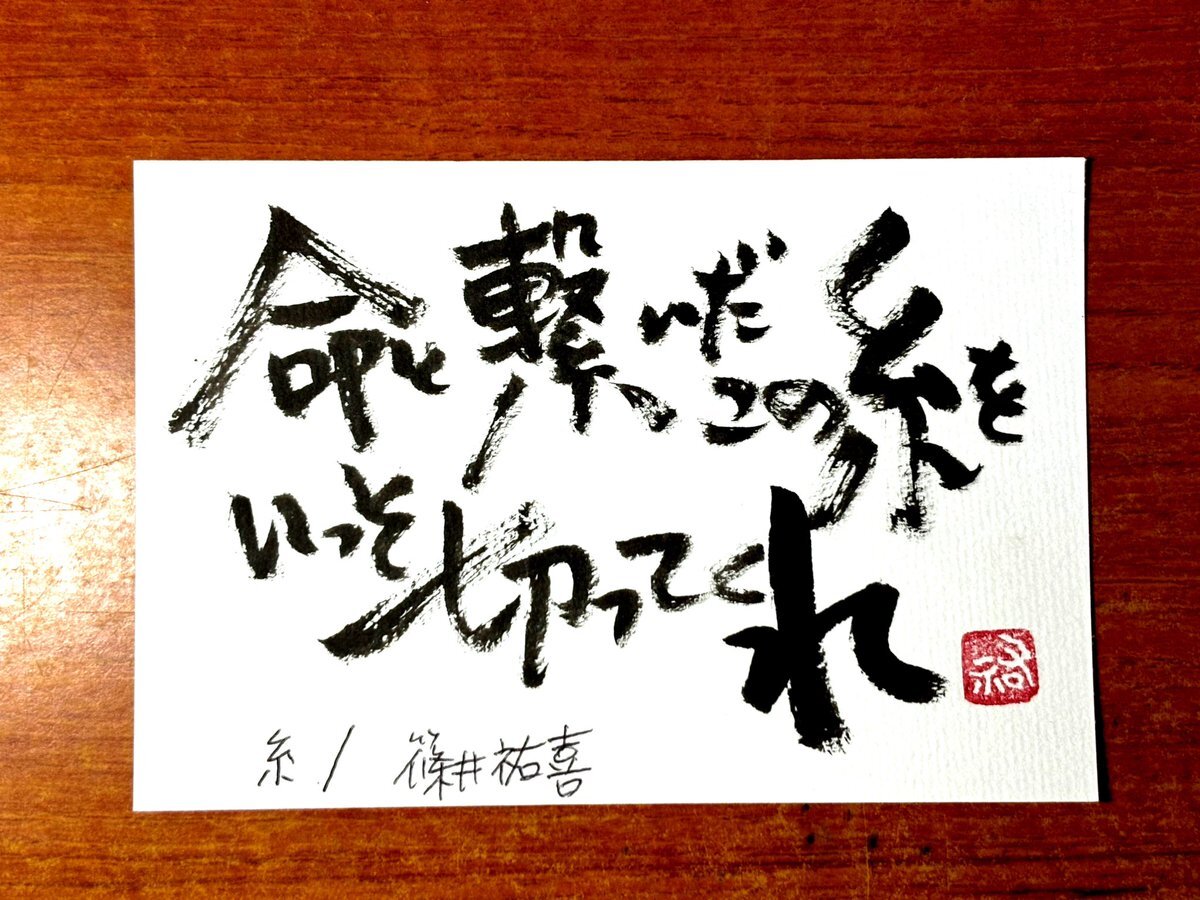 命を繋いだこの糸を
いっそ切ってくれ
糸 / 篠井祐喜
祐